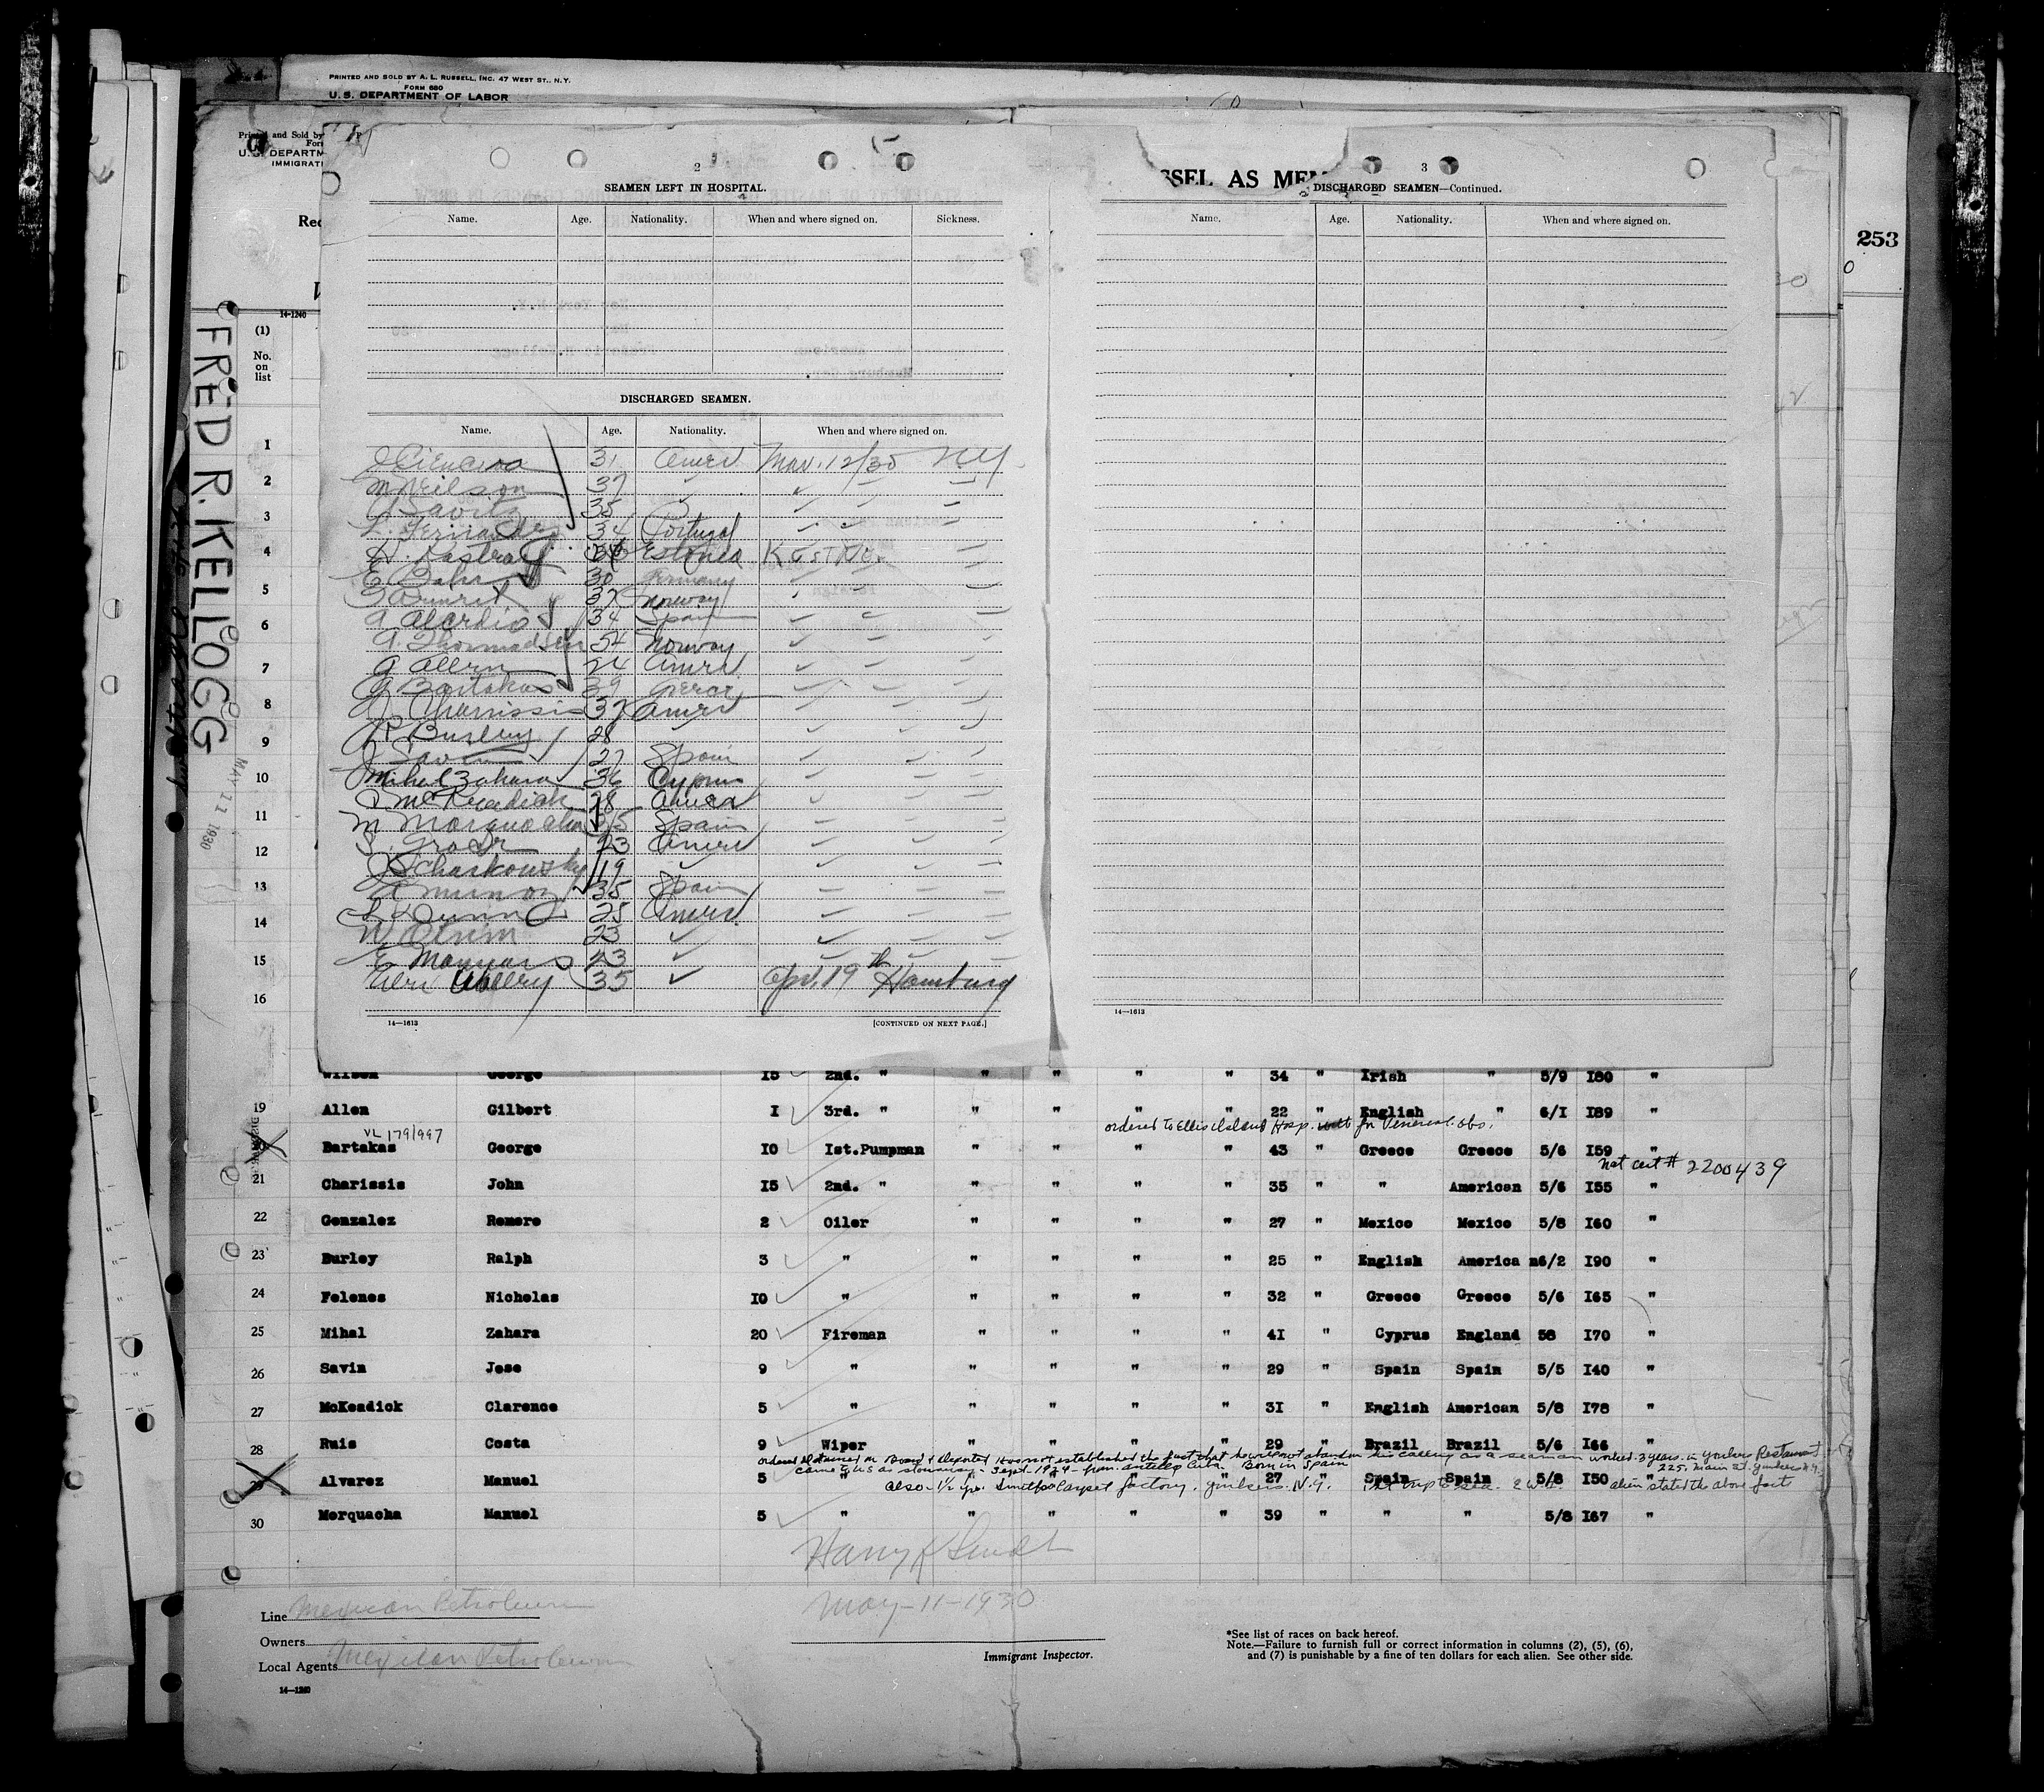 PRINTED AND SOLD BY A. L. RUSSELL, INC. 47 WEST ST., N.Y.
FORM 680
U. S. DEPARTMENT OF LABOR
Printed and Sold by
For
U. S. DEPARTM
IMMIGRATI
Rec
14-1240
FRED R. KELLOGG
MAY 11 1930
253
SSEL AS MEM
2
SEAMEN LEFT IN HOSPITAL.
Name. Age. Nationality. When and where signed on. Sickness.
DISCHARGED SEAMEN.
Name. Age. Nationality. When and where signed on.
31 Amer Mar. 12/30 NY
M Neilson 37 ✓
A Savits 35
L. Fernandez 34 Portugal
H. Kastra Estonea K GSTNO.
E Bahr 30 Germany
37 Norway
A Alerdio 34 Spain
A. Thormadsen 54 Norway
G Allen 24 Amer
G Bartakas 39
J Charissis 37 Amer
R Burley 28 ✓
J Savin 27 Spain
Mihal Zahara 36 Cyprus
C McKeadick 28 Amer
M Morquacha 35 Spain
S. Grodr 23 Amer
Schaskowsky 19 ✓
A Munoz 35 Spain
L Dunn 25 Amer
W 23 ✓
E Maynard 43
Ullery 35 ✓ Apr. 19th Hamburg
14—1613 [CONTINUED ON NEXT PAGE.]
3
DISCHARGED SEAMEN—Continued.
Name. Age. Nationality. When and where signed on.
14—1613
(1)
No. on list
1
2
3
4
5
6
7
8
9
10
11
12
13
14
15
16
Wilson George 15 2nd. " " " " " 34 " Irish " 5/9 I80 "
19 Allen Gilbert I 3rd. " " " " " 22 " English " 6/I I89 "
VL 179/997 ordered to Ellis Island Hosp. for Venereal obs.
20 Bartakas George IO Ist.Pumpman " " " " 43 " Greece Greece 5/6 I59 "
Nat cert # 2200439
21 Charissis John I5 2nd. " " " " " 35 " " American 5/6 I55 "
22 Gonzalez Romero 2 Oiler " " " " 27 " Mexico Mexico 5/8 I60 "
23 Burley Ralph 3 " " " " " 25 " English America n6/2 I90 "
24 Felenes Nicholas IO " " " " " 32 " Greece Greece 5/6 I65 "
25 Mihal Zahara 20 Fireman " " " " 4I " Cyprus England 58 I70 "
26 Savin Jose 9 " " " " " 29 " Spain Spain 5/5 I40 "
27 McKeadick Clarence 5 " " " " " 3I " English American 5/8 I78 "
28 Ruis Costa 9 Wiper " " " " 29 " Brazil Brazil 5/6 I66 "
ordered detained on Board & deported Has not established the fact that he will not abandon his calling as a seaman worked 3 years in Yonkers Restaurant
came to U S as stowaway - Sept. 1924 - from Antilla Cuba Born in Spain 225. Main St. Yonkers N.Y.
29 Alvarez Manuel 5 " " " " " 27 " Spain Spain 5/8 I50 "
also - 1½ yrs. Smith Carpet factory. Yonkers. N.Y. 1st trip to sea. alien stated the above fact
30 Morquacha Manuel 5 " " " " " 39 " " " 5/8 I67 "
May-11-1930
Line Mexican Petroleum
Owners
Local Agents Mexican Petroleum
Immigrant Inspector.
*See list of races on back hereof.
Note.—Failure to furnish full or correct information in columns (2), (5), (6),
and (7) is punishable by a fine of ten dollars for each alien. See other side.
14—1240